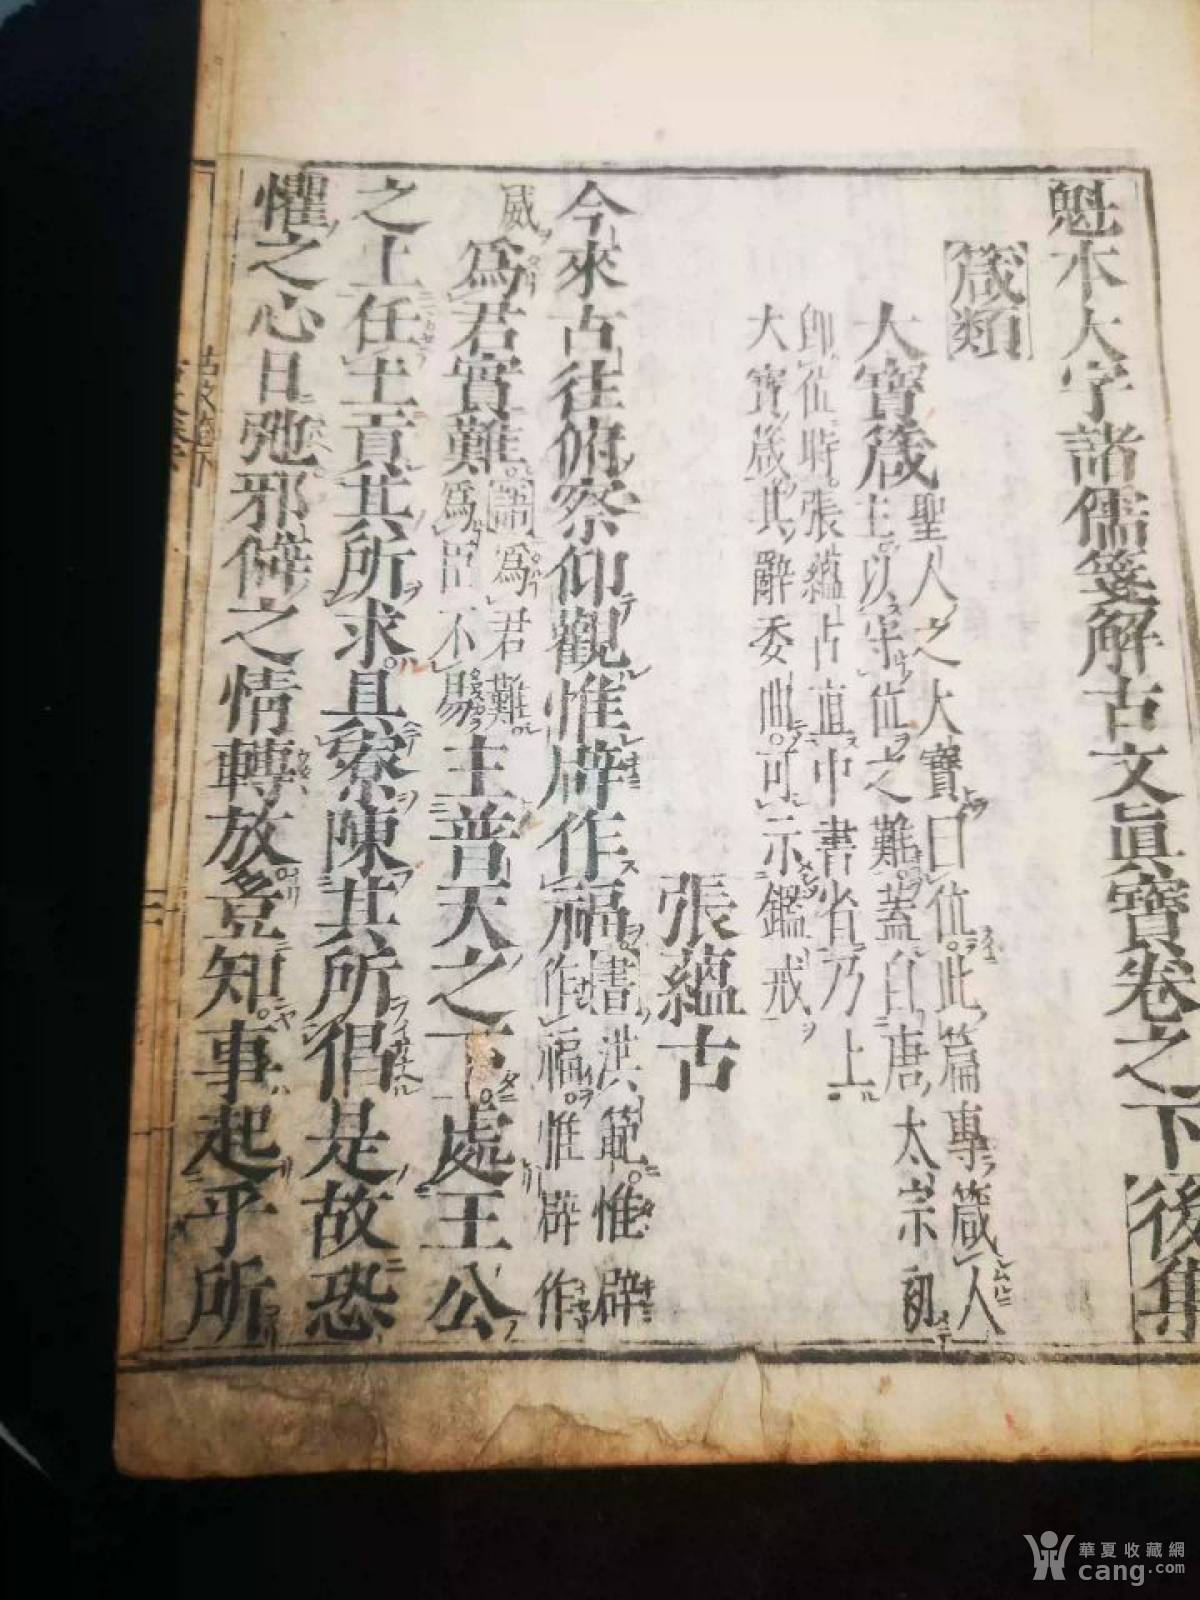 魁本大字諸儒箋解古文眞寳卷之下 後集
箴類
大寳箴 聖人之大寳曰位此篇專箴人
主以守位之難蓋自唐太宗初
即位時張蘊古直中書省乃上
大寳箴其辭委曲可示鑑戒
張蘊古
今來古往俯察仰觀惟辟作福 書洪範惟辟
作福惟辟作
威爲君實難 語爲君難
爲臣不易 主普天之下處王公
之上任土貢其所求具寮陳其所倡是故恐
懼之心日弛邪僻之情轉放豈知事起乎所
華夏收藏網
cang.com